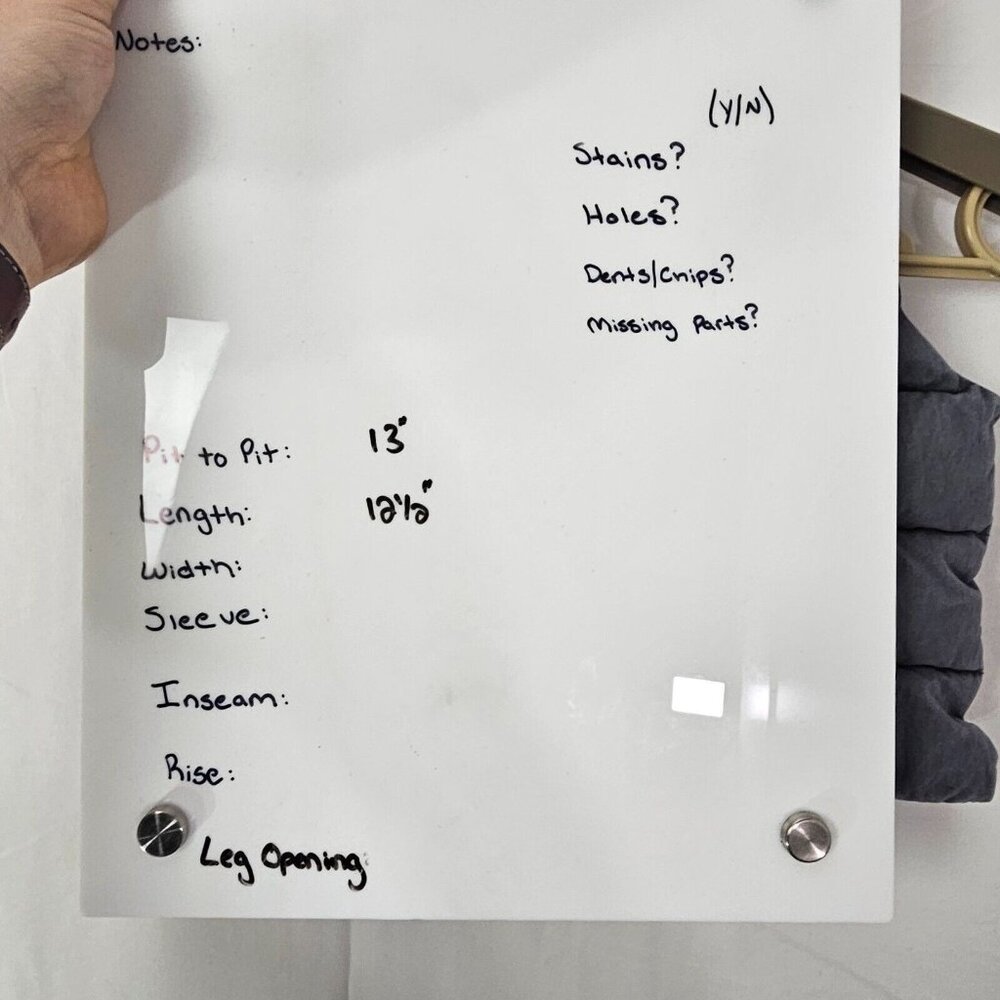 Notes:
(Y/N)
Stains?
Holes?
Dents/Chips?
Missing Parts?
Pit to Pit: 13"
Length: 12 1/2"
Width:
Sleeve:
Inseam:
Rise:
Leg Opening: